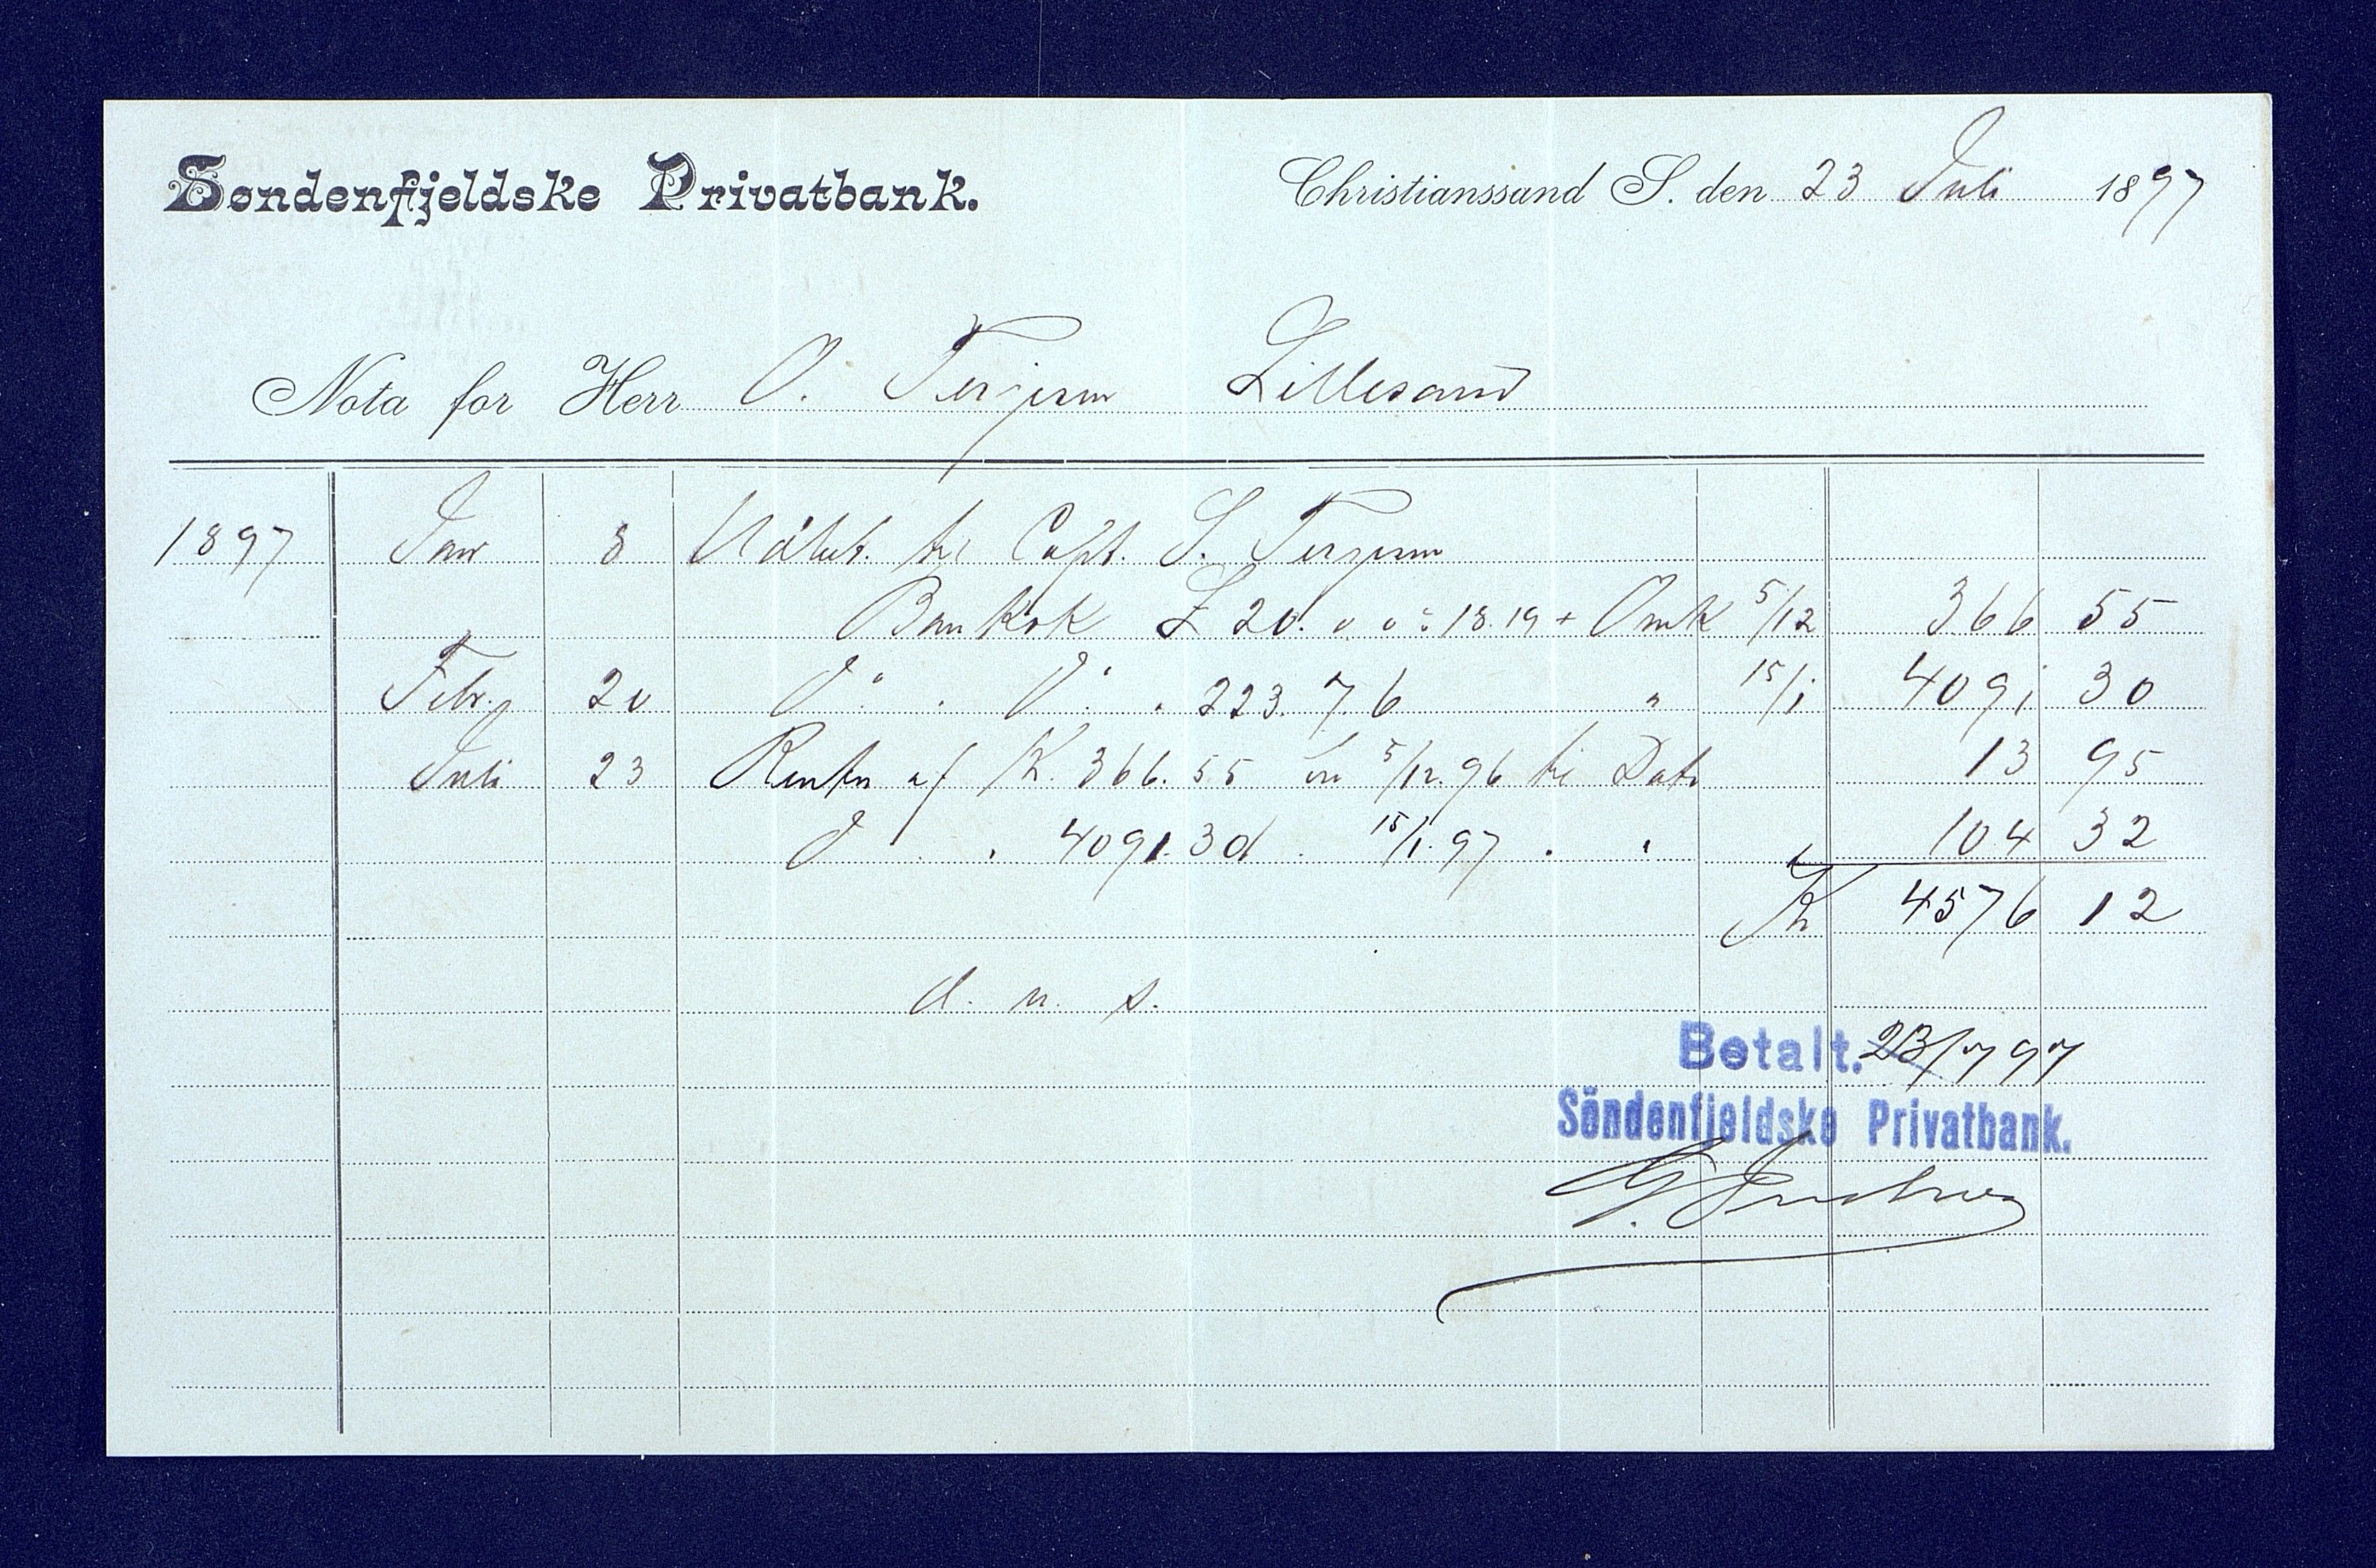 Søndenfjeldske Privatbank.
Christianssand S. den 23 Juli 1897
Nota for Herr O. Terjesen Lillesand
1897 Jan 8 Udbet. til Capt. S. Terjesen
Bankok £ 20. " " : 18.19 + Omk 5/12 366 55
Febr. 20 Do . Do . 223. 7. 6 " 15/1 4091 30
Juli 23 Renter af K. 366.55 fra 5/12.96 til Dato 13 95
Do . 4091.30 . 15/1.97 . . 104 32
Kr 4576 12
d. u. s.
Betalt. 23/7 97
Söndenfjeldske Privatbank.